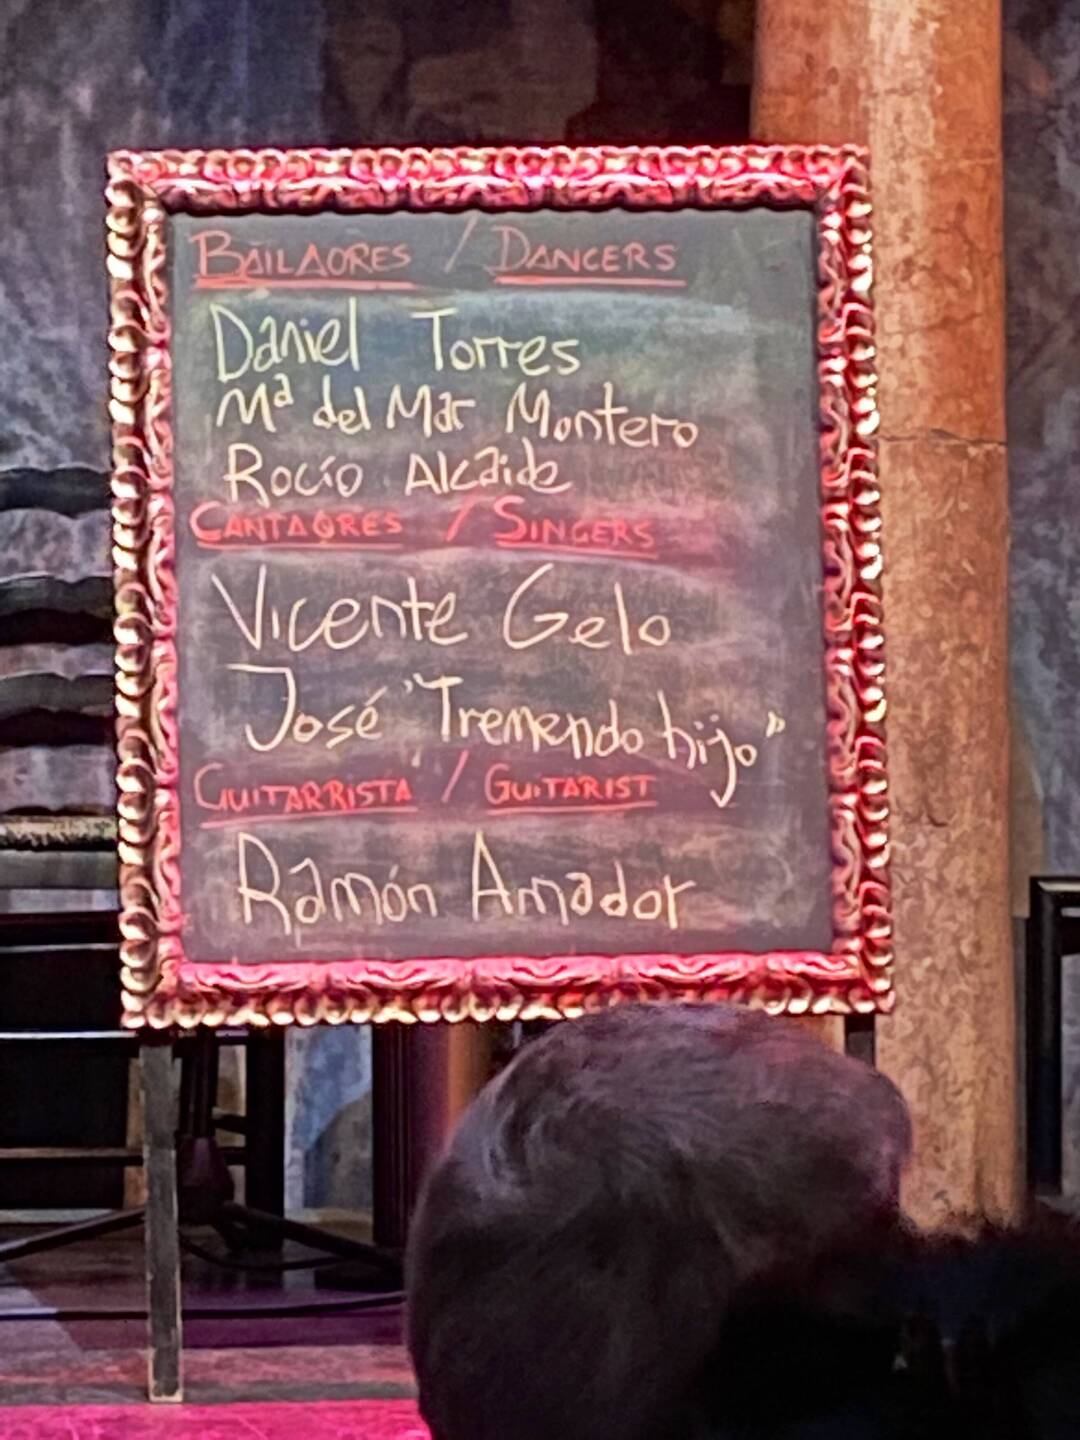 BAILAORES / DANCERS
Daniel Torres
Mª del Mar Montero
Rocío Alcaide
CANTAORES / SINGERS
Vicente Gelo
José "Tremendo hijo"
GUITARRISTA / GUITARIST
Ramón Amador